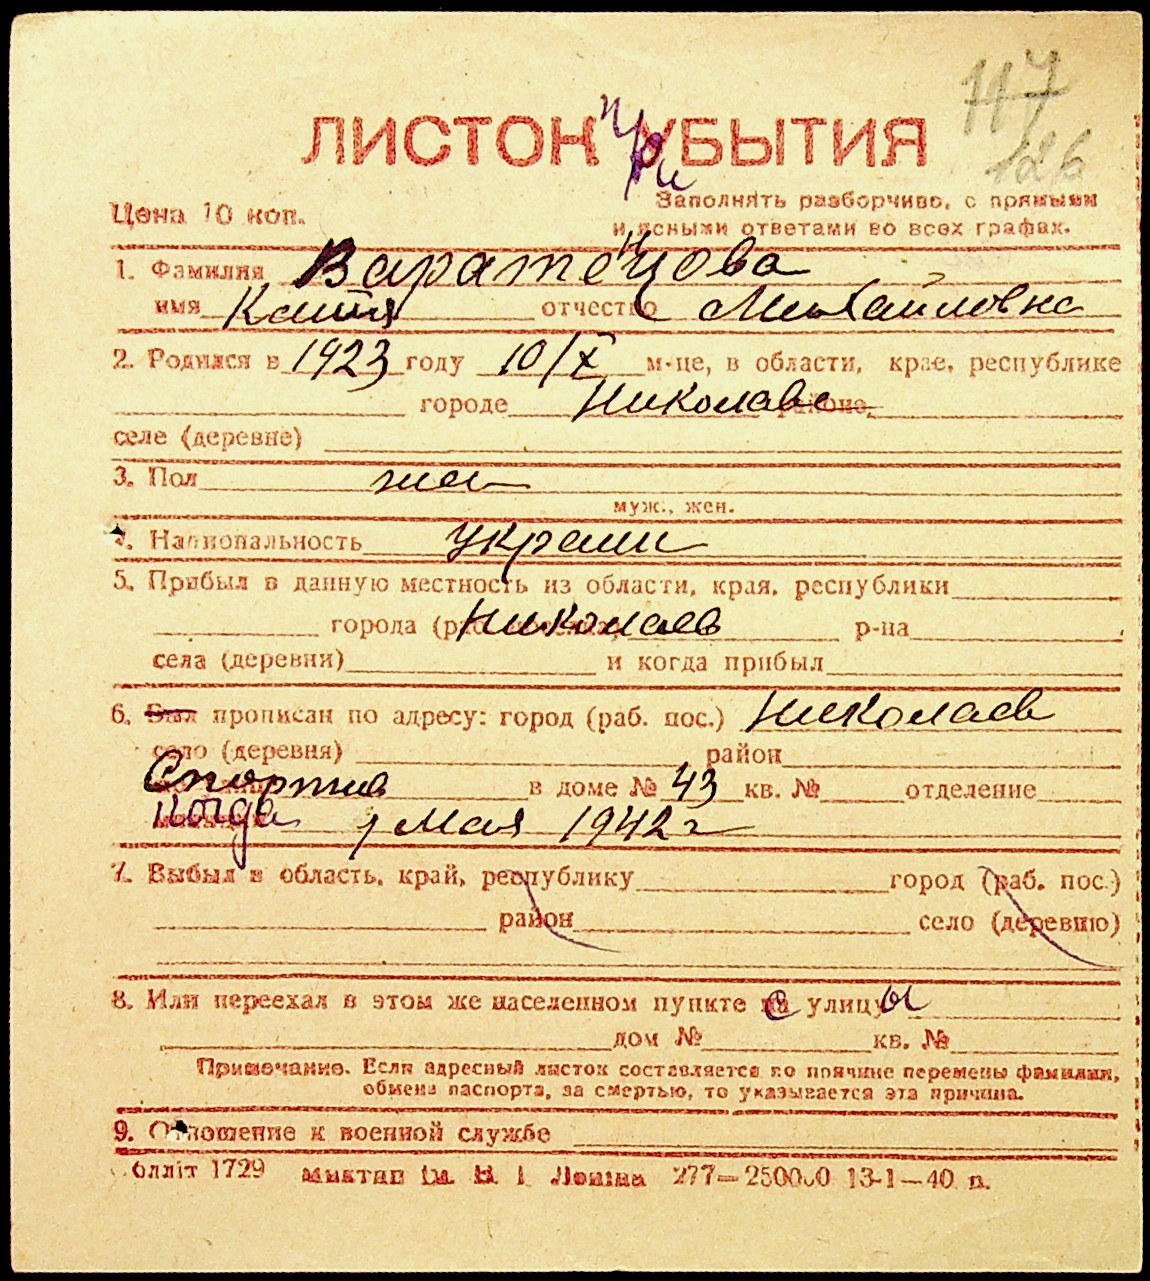 117
126
ЛИСТОК УБЫТИЯ
при
Цена 10 коп.
Заполнять разборчиво, с прямыми
и ясными ответами во всех графах.
1. Фамилия Варатенцова
имя Катя отчество Михайловна
2. Родился в 1923 году 10/X м-це, в области, крае, республике
городе Николаве районе,
селе (деревне)
3. Пол жен
муж., жен.
4. Национальность украин
5. Прибыл в данную местность из области, края, республики
города Николаев р-на
села (деревни) и когда прибыл
6. Был прописан по адресу: город (раб. пос.) Николаев
село (деревня) район
Спортив в доме № 43 кв. № отделение
когда 1 Мая 1942 г
7. Выбыл в область, край, республику город (раб. пос.)
район село (деревню)
8. Или переехал в этом же населенном пункте с улицы
дом № кв. №
Примечание. Если адресный листок составляется по причине перемены фамилии,
обмена паспорта, за смертью, то указывается эта причина.
9. Отношение к военной службе
облліт 1729 277—250000 13-1—40 п.